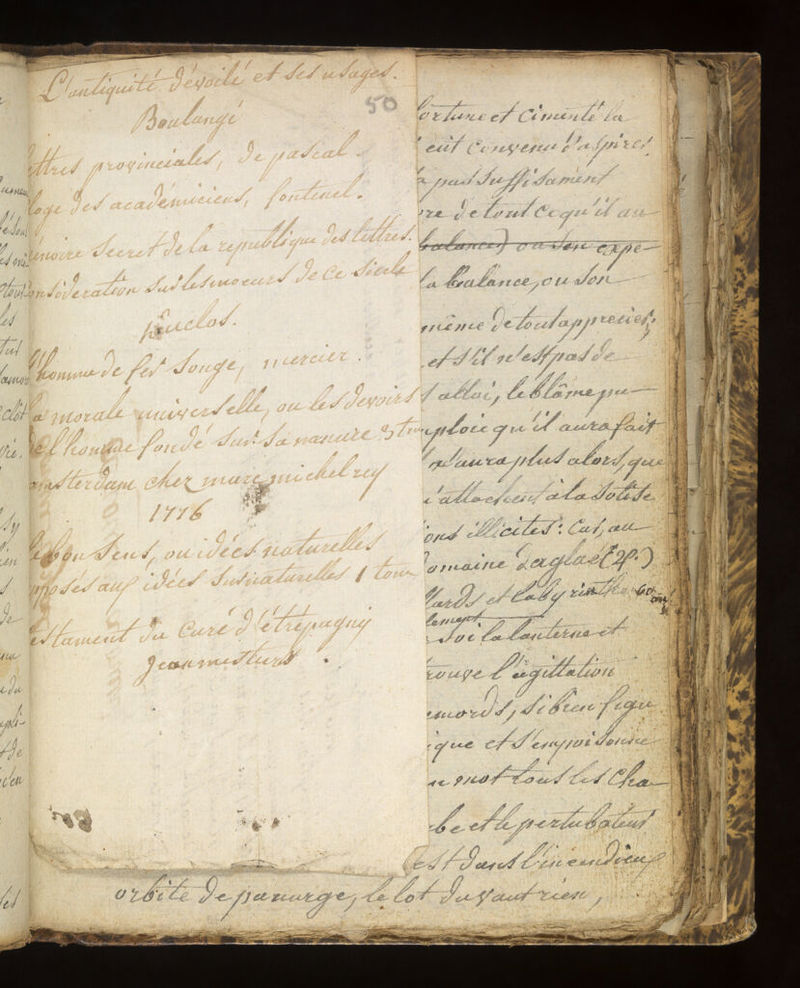 L'antiquité dévoilé et ses usages.
50
Boulangé
ettres provinciales, de pascal
loge des académiciens, fontenel.
emoire secret de la republique des lettres.
onsideration sur les moeurs de ce siecle
Duclos.
l'homme de fer songe, mercier.
la morale universelle, ou les devoirs
de l'homme fondé sur sa nature 3 tom
amsterdam chez marc michel rey
1776
le bon sens, ou idées naturelles
pposés aux idées surnaturelles 1 tom
estament du Curé d'étrépagny
Jean
orture et cimenté la
eut convenu d'aspirer
a pas suffisament
re de tout ce qu'il au
balance) ou son expe
la balance, ou son
même de tout apprecier;
et s'il n'est pas de
alloi, le blâme pu
mploie qu'il aura fait
n'aura plus alors, que
attachent à la sotise
ions illicites: Car, au
omaine
lards et labyrinthe
lement
soi la lanterne et
rouve l'agittation
emords, si bien figu
ique et s'empoisonne
n mot tous les Cha
be et le pertubateur
est dans l'incendieux
orbite de panurge, le lot du vautrien,